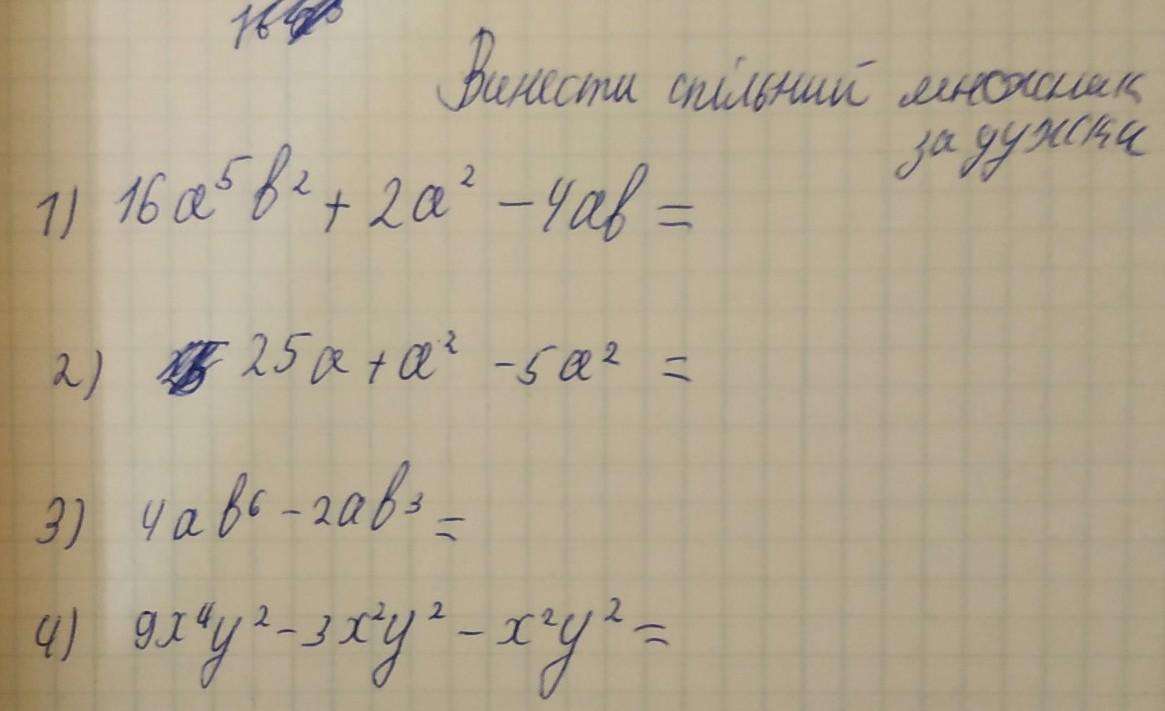 Винести спільний множник
за дужки
1) 16a⁵b² + 2a² - 4ab =
2) 25a + a² - 5a² =
3) 4ab⁶ - 2ab³ =
4) 9x⁴y² - 3x²y² - x²y² =